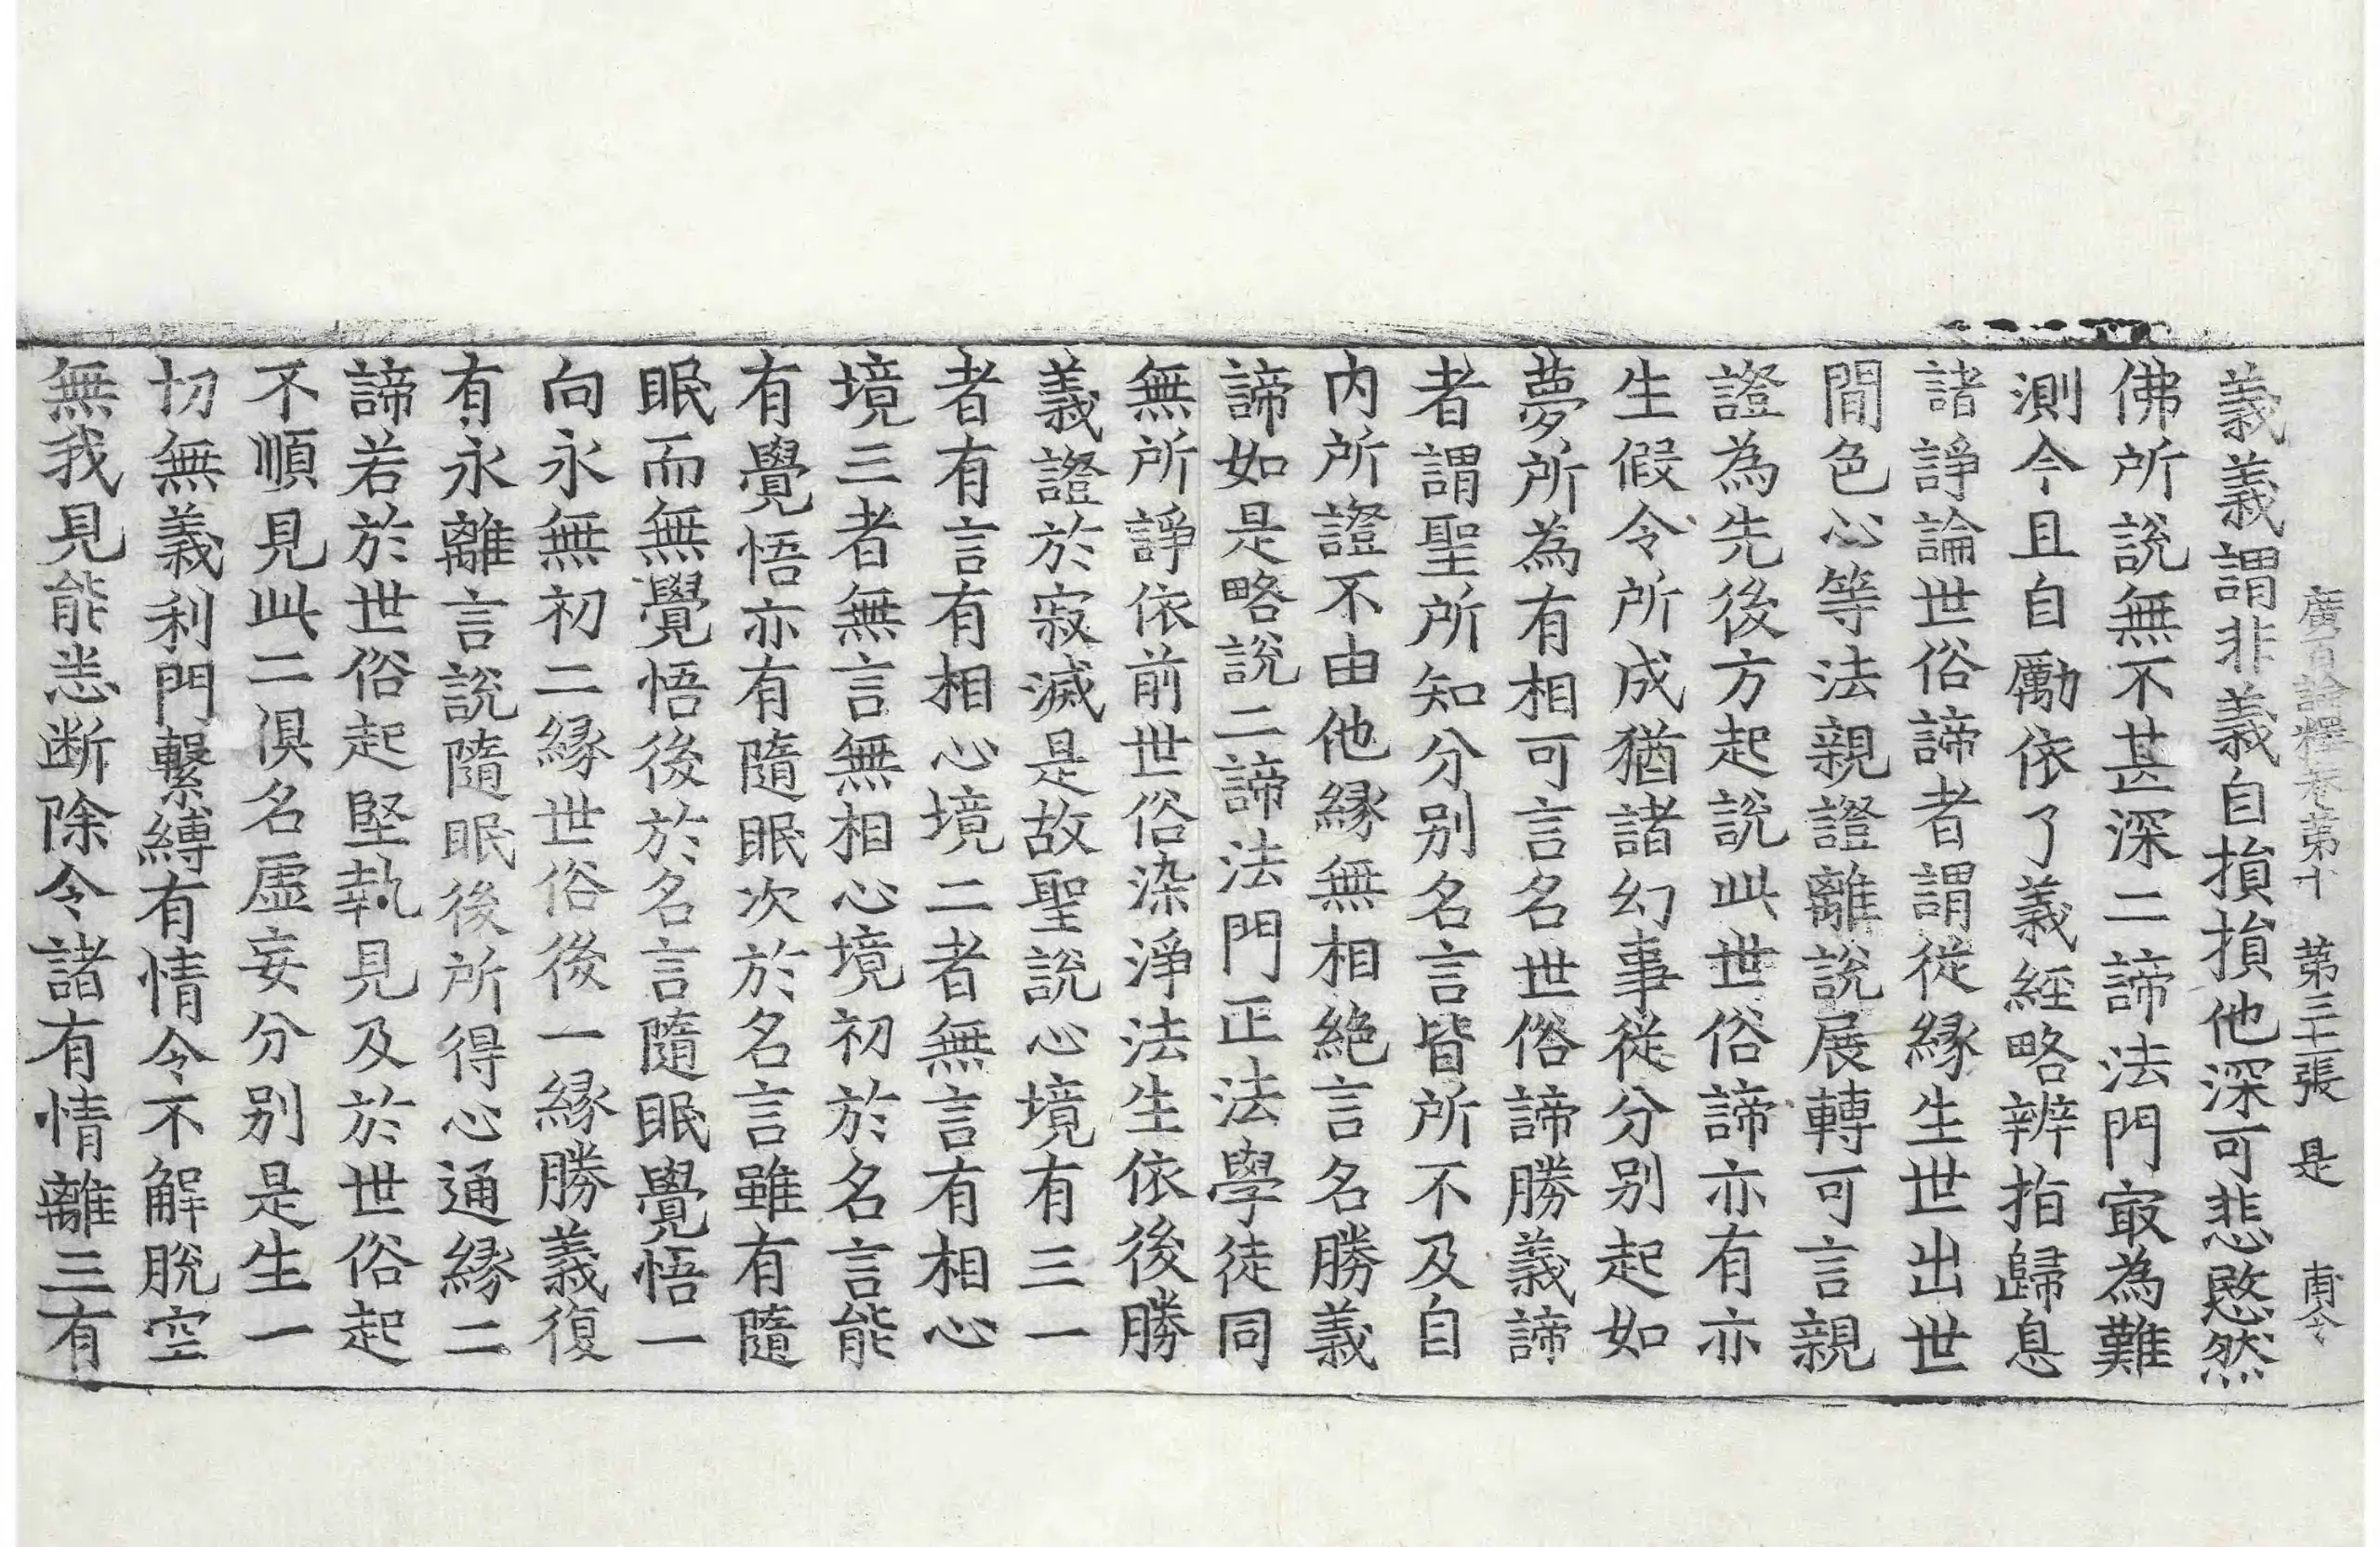 廣百論釋卷第十 第三十張 是
義義謂非義自損損他深可悲愍然
佛所說無不甚深二諦法門㝡為難
測今且自勵依了義經略辨指歸息
諸諍論世俗諦者謂從緣生世出世
間色心等法親證離說展轉可言親
證為先後方起說此世俗諦亦有亦
生假令所成猶諸幻事從分别起如
夢所為有相可言名世俗諦勝義諦
者謂聖所知分别名言皆所不及自
内所證不由他緣無相絕言名勝義
諦如是略說二諦法門正法學徒同
無所諍依前世俗染淨法生依後勝
義證於寂滅是故聖說心境有三一
者有言有相心境二者無言有相心
境三者無言無相心境初於名言能
有覺悟亦有隨眠次於名言雖有隨
眠而無覺悟後於名言隨眠覺悟一
向永無初二緣世俗後一緣勝義復
有永離言說隨眠後所得心通緣二
諦若於世俗起堅執見及於世俗起
不順見此二俱名虛妄分别是生一
切無義利門繫縛有情令不解脫空
無我見能悉断除令諸有情離三有